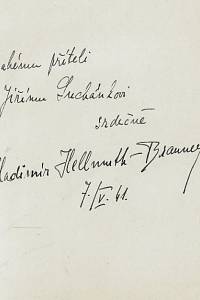 ahému příteli
Jiřímu Suchánkovi
srdečně
ladimír Hellmuth-Brauner
7/V. 61.